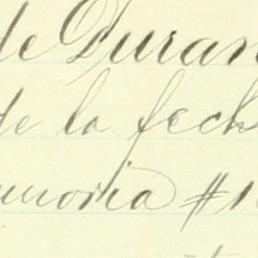 de Duran
de la fech
emoria #1